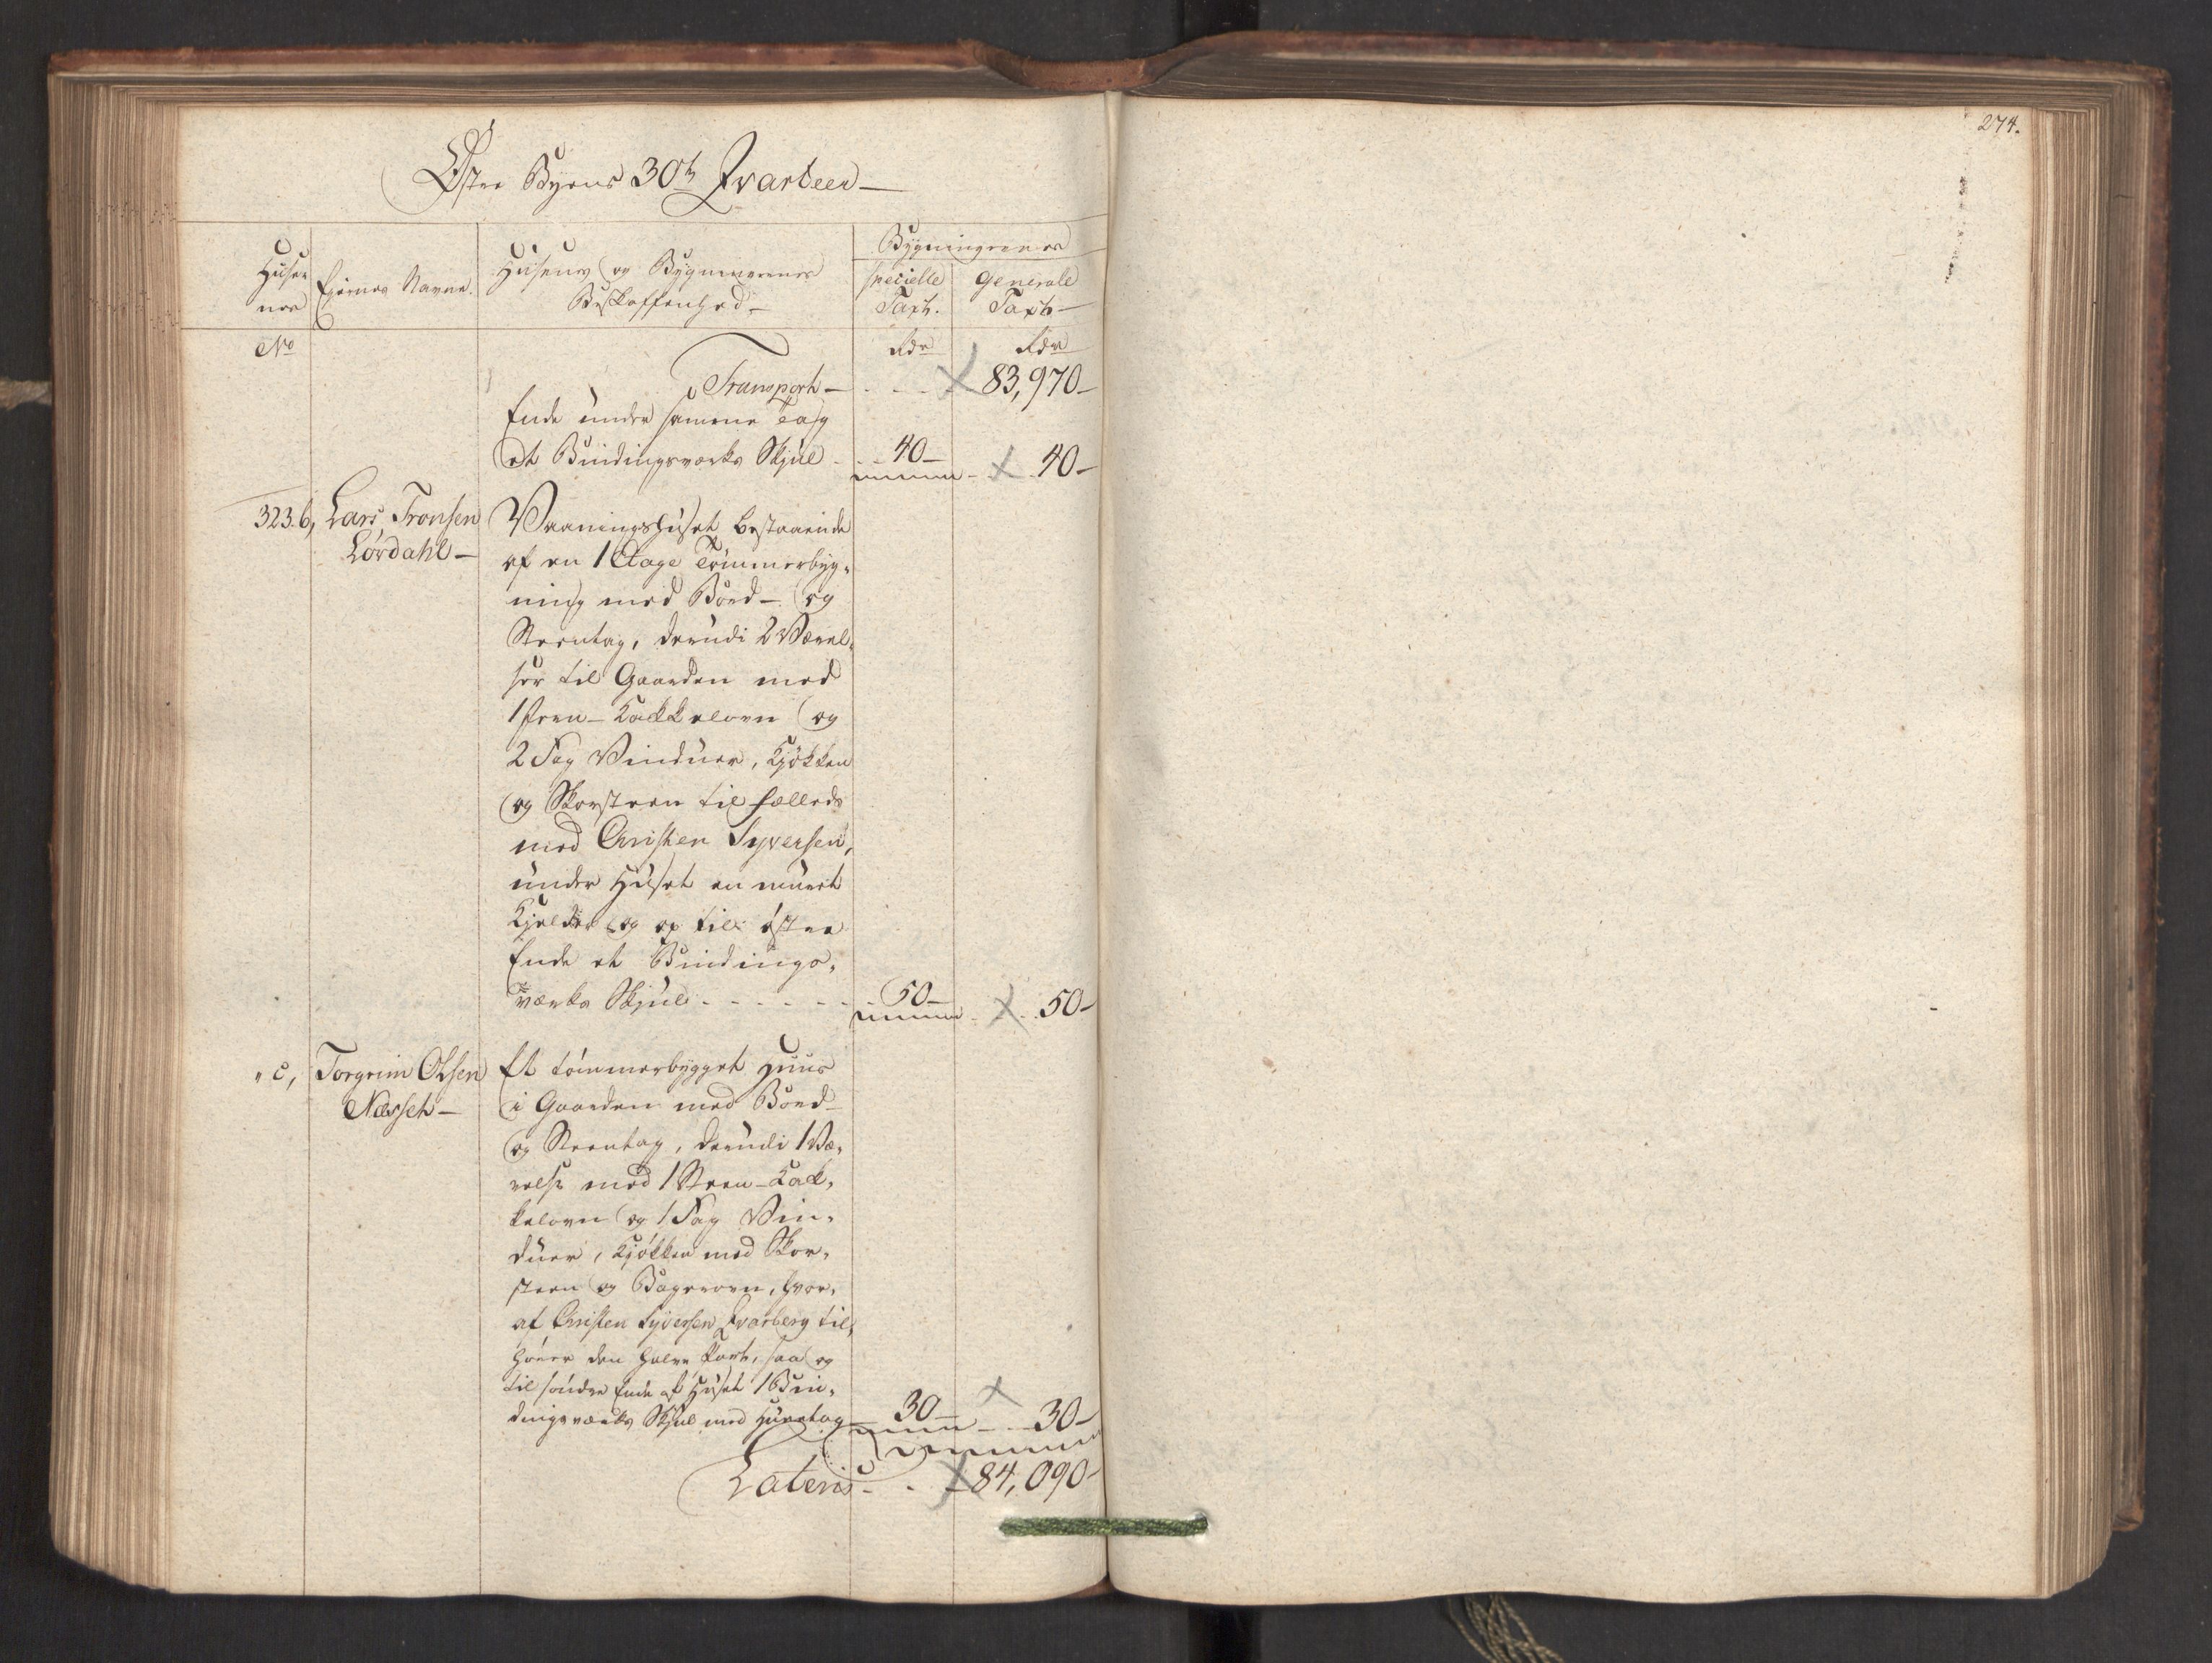 274.
Østre Byens 30te Qvarteer —
Husenes
Eiernes Navne.
Husenes og Bygningernes
Beskaffenhed —
Bygningernes
specielle Taxt.
Generale Taxt —
No
Rdr
Rdr
Transport — . . . 83,970 —
Ende under samme Tag
et Bindingsværks Skjul . . . 40 — . . 40 —
323.b, Lars Tronsen Lørdahl —
Vaaningshuset bestaaende
af en 1 Etage Tømmerbyg-
ning med Bord- og
Steentag, derudi 2 Værel-
ser til Gaarden med
1 Jern-Kackkelovn og
2 Fag Vinduer, Kjøkken
og Skorsteen til fælleds
med Christen Syversen,
under Huset en muret
Kjelder og op til østre
Ende et Bindings-
værks Skjul . . . . . . 50 — . . 50 —
" c, Torgrim Olsen Næsset —
Et tømmerbygget Huus
i Gaarden med Bord-
og Steentag, derudi 1 Væ-
relse med 1 Steen-Kack-
kelovn og 1 Fag Vin-
duer, Kjøkken med Skor-
steen og Bagerovn, hvor-
af Christen Syversen Qvarberg til-
hører den halve Part, saa og
til søndre Ende af Huset 1 Bin-
dingsværks Skjul med Huuntag — 30 — . . 30 —
Lateris — . . 84,090 —